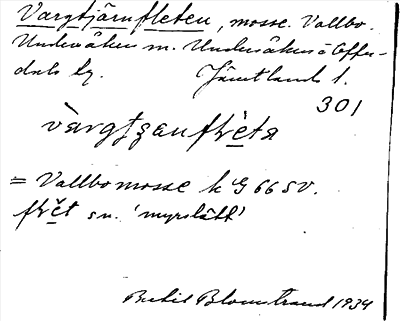 Vargtjärnfleten, mosse. Vallbo.
Undersåkers sn. Undersåkers o. Offer-
dals tg. Jämtlands l.
301
= Vallbomosse k G 66 SV.
sn. 'myrslått'
Bertil Blomstrand 1934